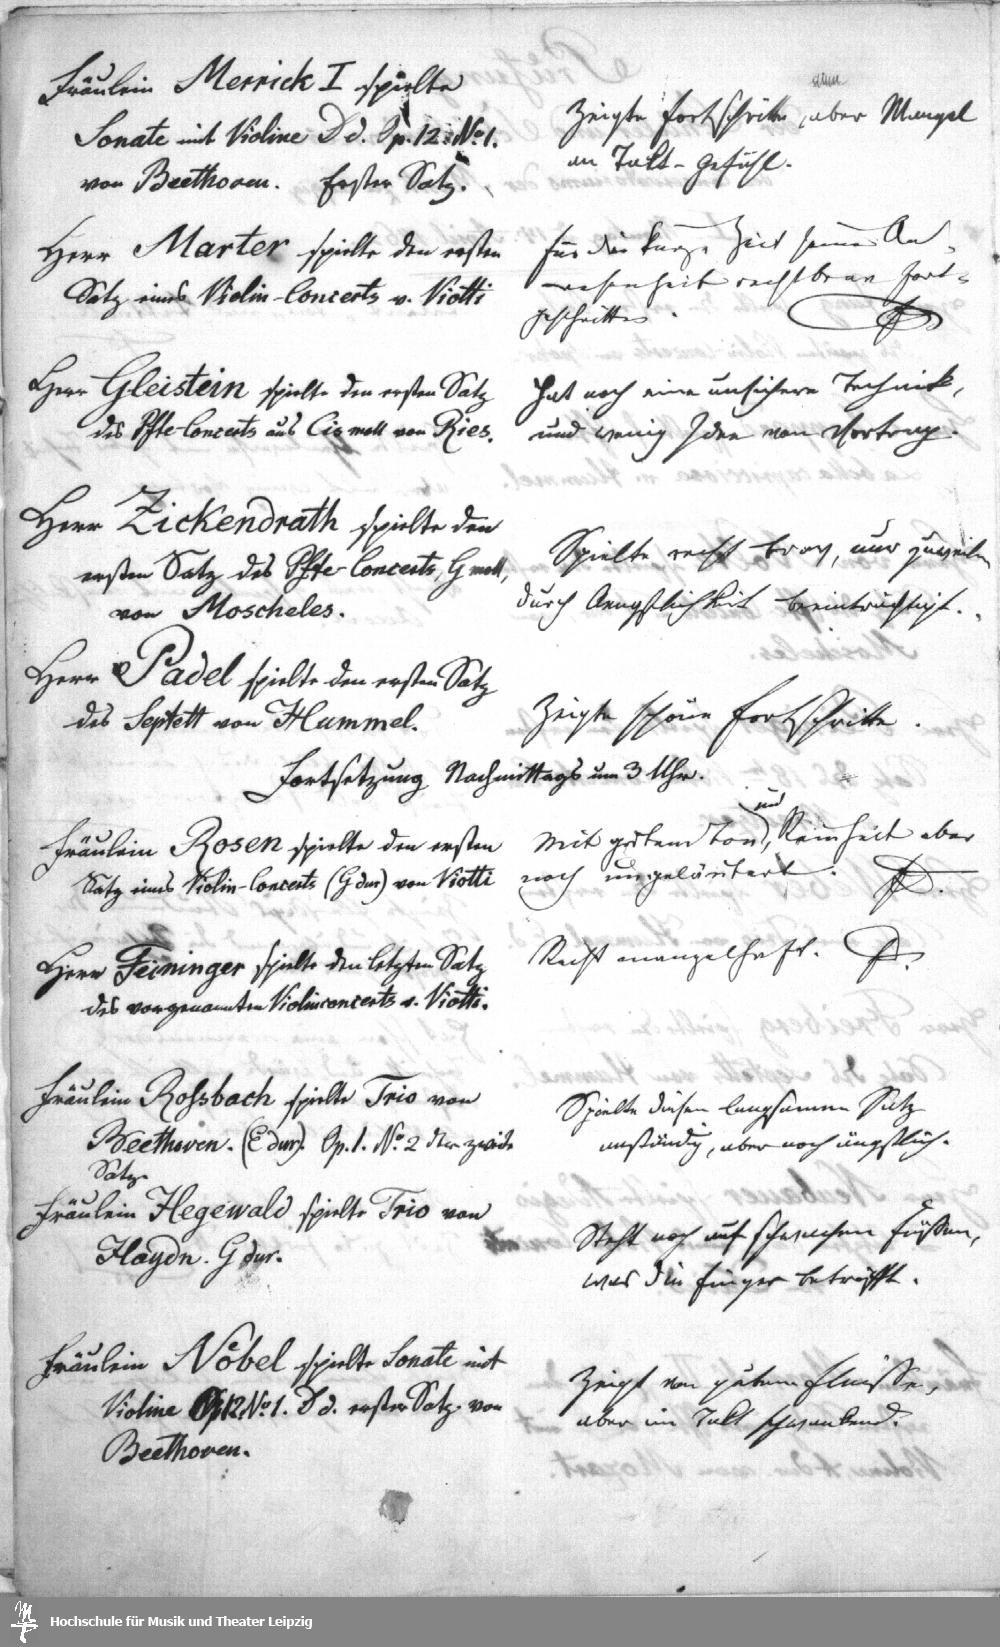 Fräulein Merrick I spielte
Sonate mit Violine D d. Op. 12. No 1.
von Beethoven. Erster Satz.
Zeigte Fortschritte, aber Mangel
an Takt-Gefühl.
Herr Marter spielte den ersten
Satz eines Violin-Concerts v. Viotti
Für die kurze Zeit seiner An-
wesenheit recht brav fort-
geschritten.
Herr Gleistein spielte den ersten Satz
des Pfte-Concerts aus Cis moll von Ries.
Hat noch eine unsichere Technik,
und wenig Idee von Vortrag.
Herr Zickendrath spielte den
ersten Satz des Pfte-Concerts, G moll,
von Moscheles.
Spielte recht brav, nur zuweilen
durch Aengstlichkeit beeinträchtigt.
Herr Padel spielte den ersten Satz
des Septett von Hummel.
Zeigte schöne Fortschritte.
Fortsetzung Nachmittags um 3 Uhr.
Fräulein Rosen spielte den ersten
Satz eines Violin-Concerts (G dur) von Viotti
und
Mit gutem Ton, Reinheit aber
noch ungeläutert. D.
Herr Feininger spielte den letzten Satz
des vorgenannten Violinconcerts v. Viotti.
Recht mangelhaft. D.
Fräulein Rossbach spielte Trio von
Beethoven. (E dur). Op. 1. No 2 der zweite
Satz.
Spielte diesen langsamen Satz
anständig, aber noch ängstlich.
Fräulein Hegewald spielte Trio von
Haydn. G dur.
Steht noch auf schwachen Füßen,
was die Finger betrifft.
Fräulein Nöbel spielte Sonate mit
Violine Op 12 No 1. D d. erster Satz von
Beethoven.
Zeigt von gutem Fleisse,
aber im Takt schwankend.
Hochschule für Musik und Theater Leipzig